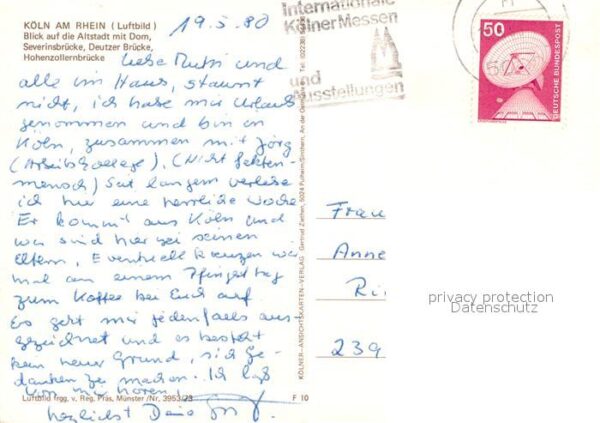 KÖLN AM RHEIN (Luftbild)
Blick auf die Altstadt mit Dom,
Severinsbrücke, Deutzer Brücke,
Hohenzollernbrücke
19.5.80
Liebe Mutti und
alle im Haus, staunt
nicht, ich habe mir Urlaub
genommen und bin in
Köln, zusammen mit Jörg
(Arbeitskollege). (Nicht
mensch) Seit langem verlebe
ich hier eine herrliche Woche
Er kommt aus Köln und
wir sind hier bei seinen
Eltern. Eventuell kreuzen wir
mal an einem Pfingsttag
zum Kaffee bei Euch auf.
Es geht mir jedenfalls aus-
gezeichnet und es besteht
kein neuer Grund, sich Ge-
danken zu machen. Ich laß
von mir hören!
herzlichst Dein
Luftbild frgg. v. Reg. Präs. Münster /Nr. 3953/73
F 10
KÖLNER-ANSICHTSKARTEN-VERLAG Gertrud Ziethen, 5024 Pulheim/Sinthern, An der
Internationale
Kölner Messen
und
Ausstellungen
50
DEUTSCHE BUNDESPOST
Frau
Anne
Ri
239
privacy protection
Datenschutz